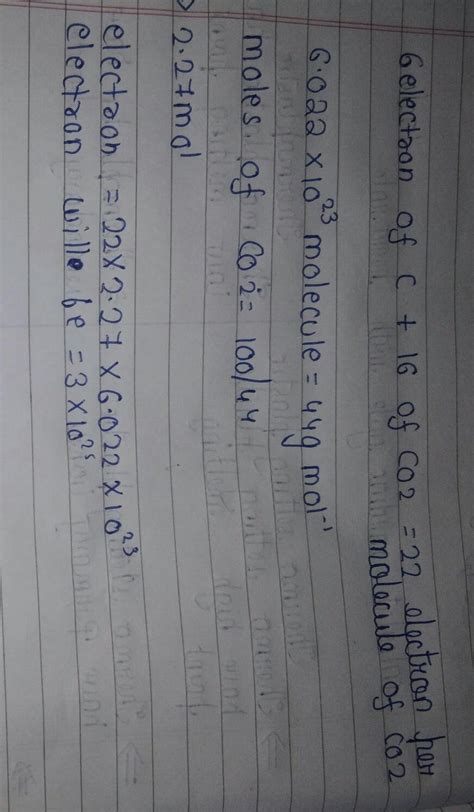 6electron of C + 16 of CO2 = 22 electron per
molecule of CO2
6.022 × 10²³ molecule = 44g mol⁻¹
moles. of CO2 = 100/44
2.27mol
electron = 22 × 2.27 × 6.022 × 10²³
electron wille be = 3 × 10²⁵